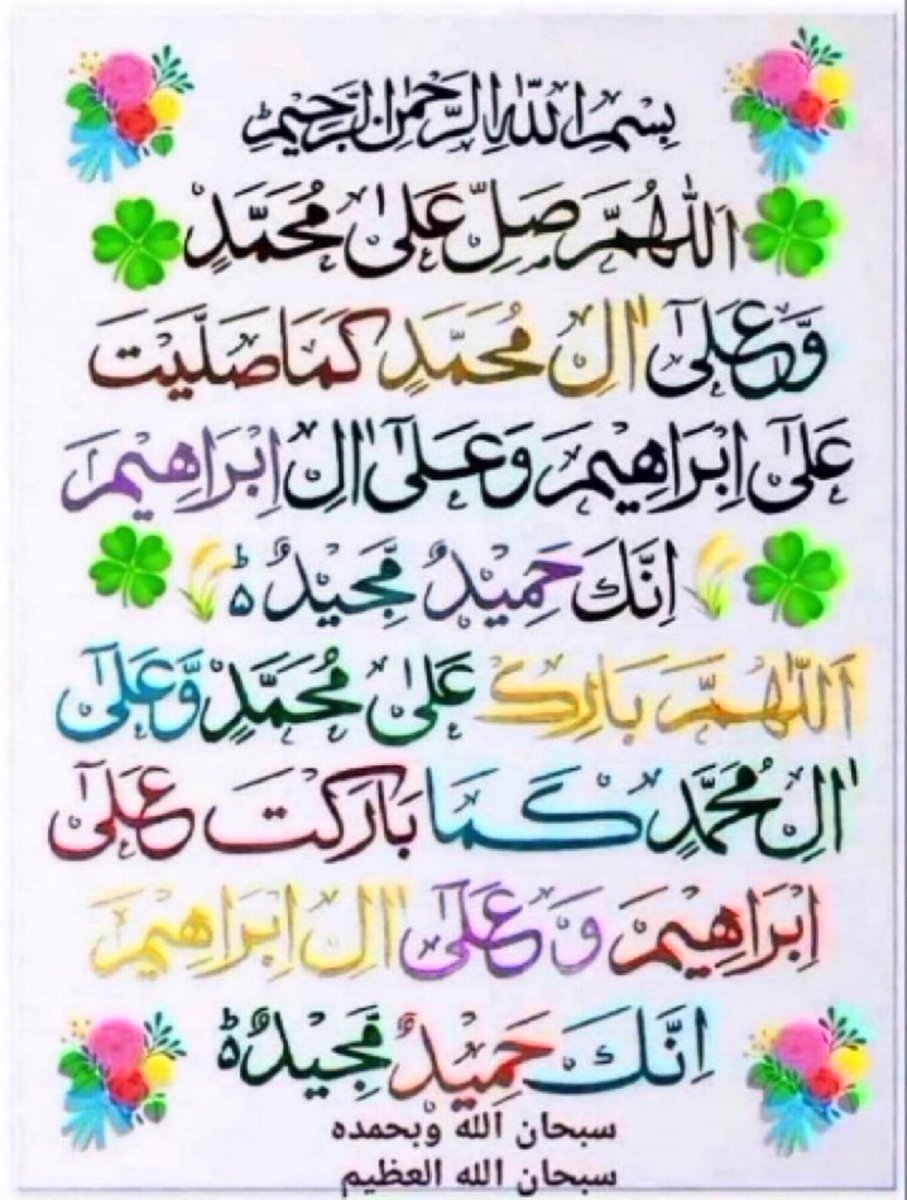 بِسْمِ اللّٰهِ الرَّحْمٰنِ الرَّحِيْمِ
اَللّٰهُمَّ صَلِّ عَلٰى مُحَمَّدٍ
وَّعَلٰٓى اٰلِ مُحَمَّدٍ كَمَا صَلَّيْتَ
عَلٰٓى اِبْرَاهِيْمَ وَعَلٰٓى اٰلِ اِبْرَاهِيْمَ
اِنَّكَ حَمِيْدٌ مَّجِيْدٌ ؕ
اَللّٰهُمَّ بَارِكْ عَلٰى مُحَمَّدٍ وَّعَلٰٓى
اٰلِ مُحَمَّدٍ كَمَا بَارَكْتَ عَلٰٓى
اِبْرَاهِيْمَ وَعَلٰٓى اٰلِ اِبْرَاهِيْمَ
اِنَّكَ حَمِيْدٌ مَّجِيْدٌ ؕ
سبحان الله وبحمده
سبحان الله العظيم